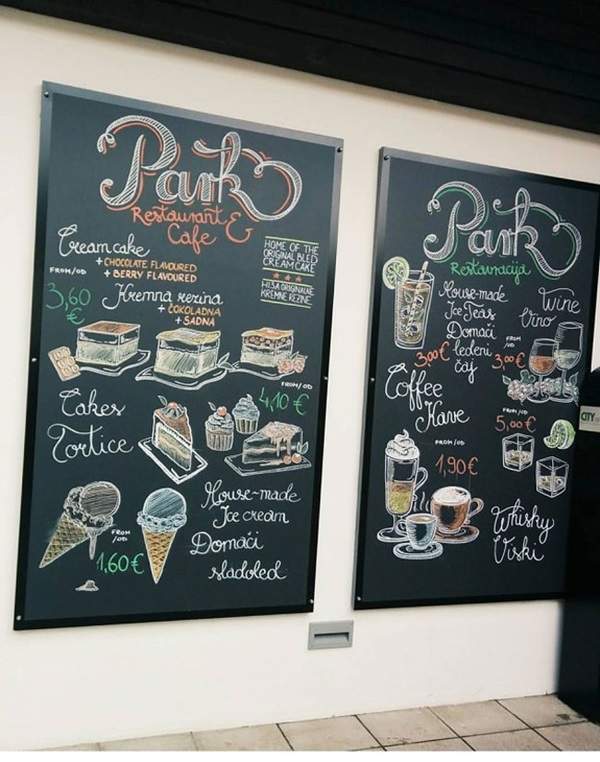 Park
Restaurant &
Cafe
Cream cake
+ CHOCOLATE FLAVOURED
+ BERRY FLAVOURED
HOME OF THE
ORIGINAL BLED
CREAM CAKE
FROM/OD
3,60
€
Kremna rezina
+ ČOKOLADNA
+ SADNA
HIŠA ORIGINALNE
KREMNE REZINE
FROM/OD
4,10 €
Cakes
Tortice
House-made
Ice cream
Domači
sladoled
FROM
/OD
1,60€
Park
Restavracija
House-made
Ice Teas
Domači
ledeni
čaj
3,00€
Wine
Vino
FROM
/OD
3,00€
Coffee
Kave
FROM/OD
1,90€
FROM/OD
5,00€
Whisky
Viski
CITY